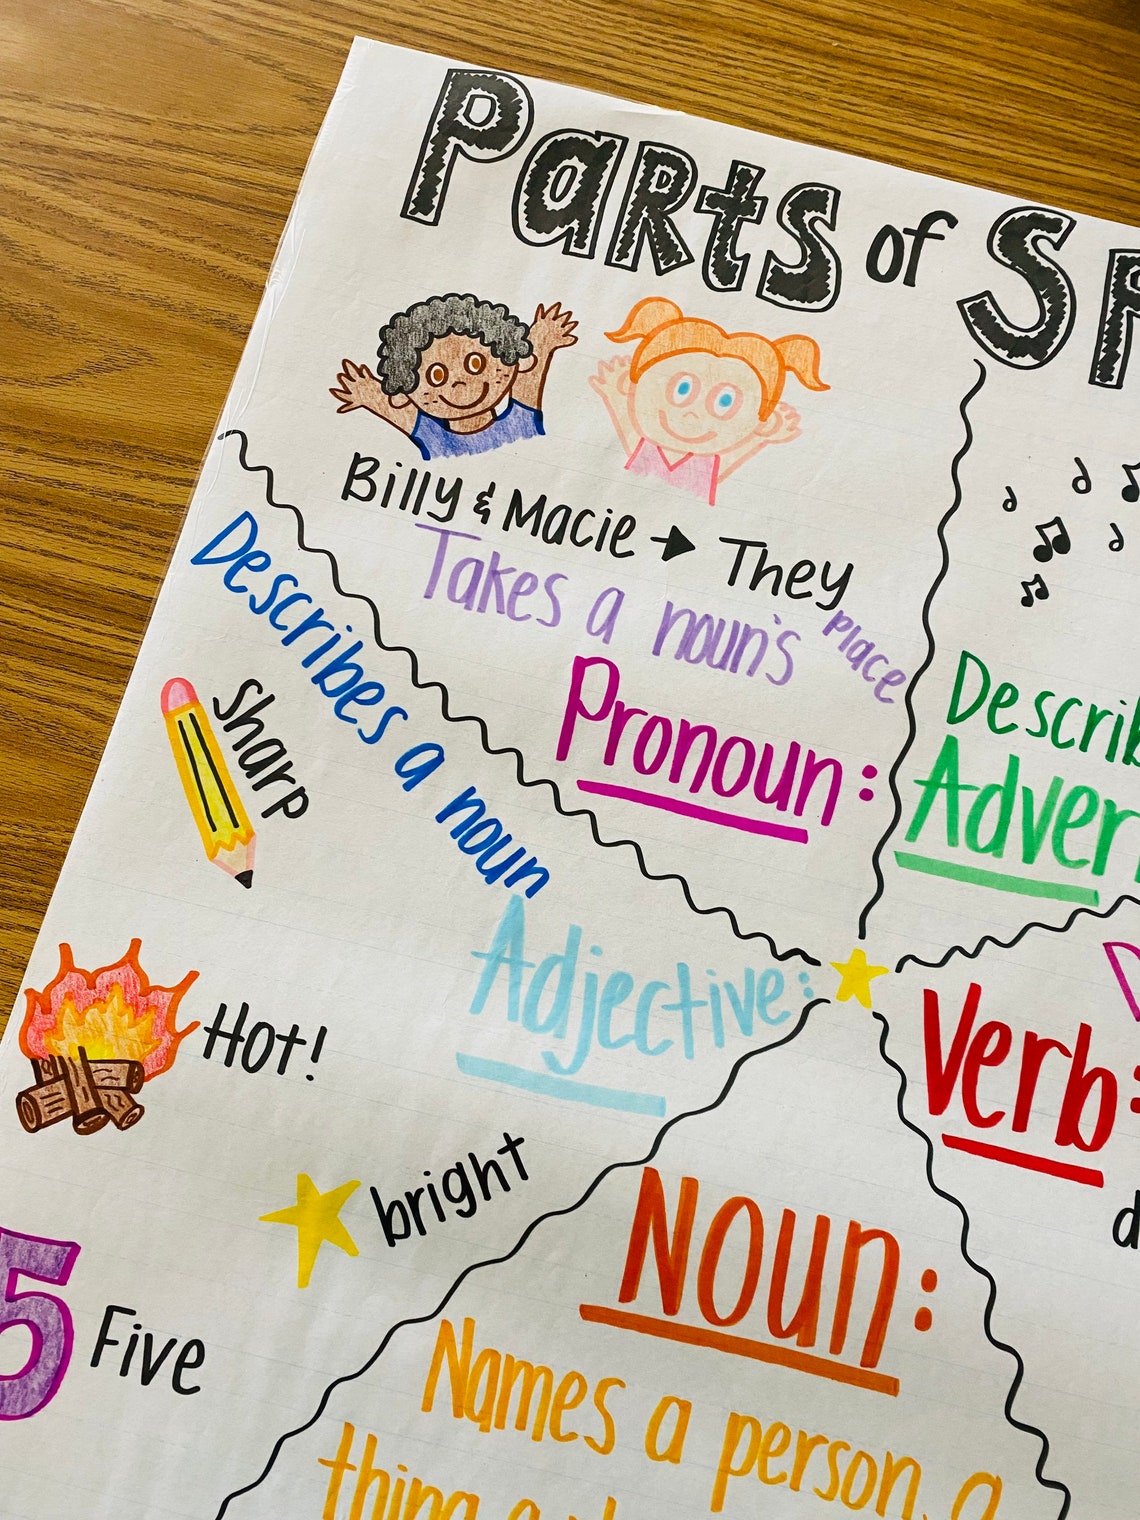 Parts of Sp
Billy & Macie → They
Takes a noun's place
Pronoun:
Describes a noun
sharp
Adjective:
Hot!
bright
5 Five
Describ
Adver
Verb:
d
Noun:
Names a person, a
thing